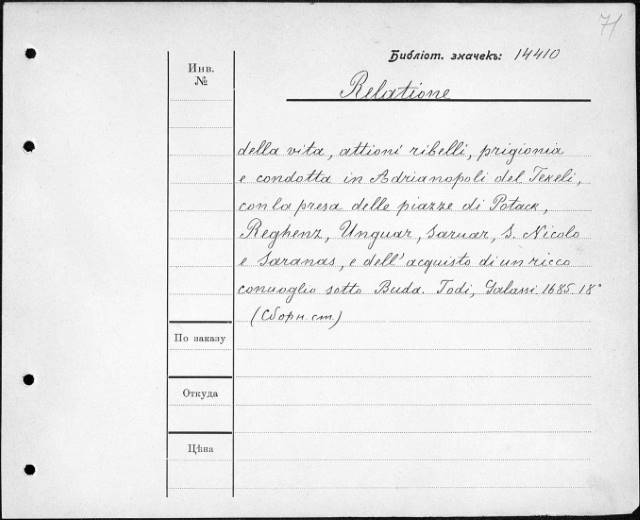 71
Библіот. значекъ: 14410
Инв.
№
Relatione
della vita, attioni ribelli, prigionia
e condotta in Adrianopoli del Texeli,
con la presa delle piazze di Potack,
Reghenz, Unguar, Saruar, S. Nicolo
e Saranas, e dell'acquisto di un ricco
conuoglio sotto Buda. Todi, Galassi 1685. 18°
(Сборн. ст.)
По заказу
Откуда
Цѣна